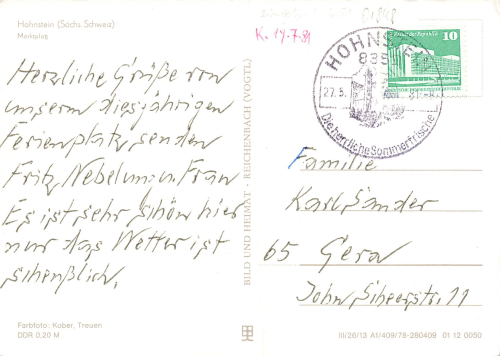 Hohnstein (Sächs. Schweiz)
Marktplatz
Herzliche Grüße von
unserm diesjährigen
Ferienplatz senden
Fritz Nebelung u. Frau
Es ist sehr schön hier
nur das Wetter ist
scheußlich.
Farbfoto: Kober, Treuen
DDR 0,20 M
BILD UND HEIMAT · REICHENBACH (VOGTL)
K. 17.7.81
HOHNSTEIN
835
27.5.
81
Die herrliche Sommerfrische
10
DDR
Familie
Karl Sander
65 Gera
John Scheerstr. 11
III/26/13 A1/409/78-280409 01 12 0050